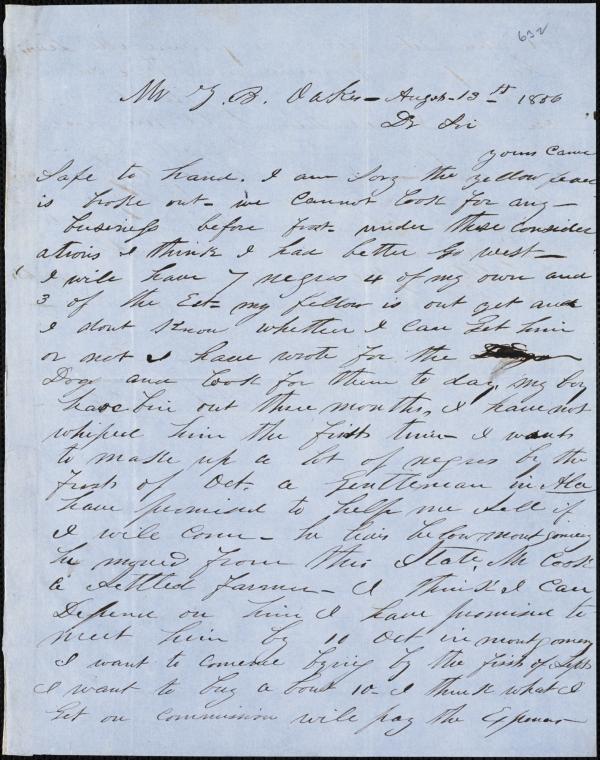 632
Mr Z. B. Oakes - Augst 13th 1856
Dr Sir
yours came
safe to hand. I am sory the yellow feaver
is broke out - we cannot look for any -
buseness before frost - under these consider
ations I think I had better go west -
I will have 7 negros 4 of my own and
3 of the Est - my fellow is out yet and
I dont know whether I can get him
or not I have wrote for the
Dogs and look for them to day, my boy
have bin out three months, I have not
whiped him the first time - I wants
to make up a lot of negros by the
first of Oct. a gentleman in Ala
have promised to help me sell if
I will come - he lives below montgomery
he moved from this State Mr Cook
a settled farmer - I think I can
Depend on him I have promised to
meet him by 10 Oct in montgomery
I want to comence bying by the first of Sept
I want to buy a bout 10 I think what I
get on commission will pay the Expenses